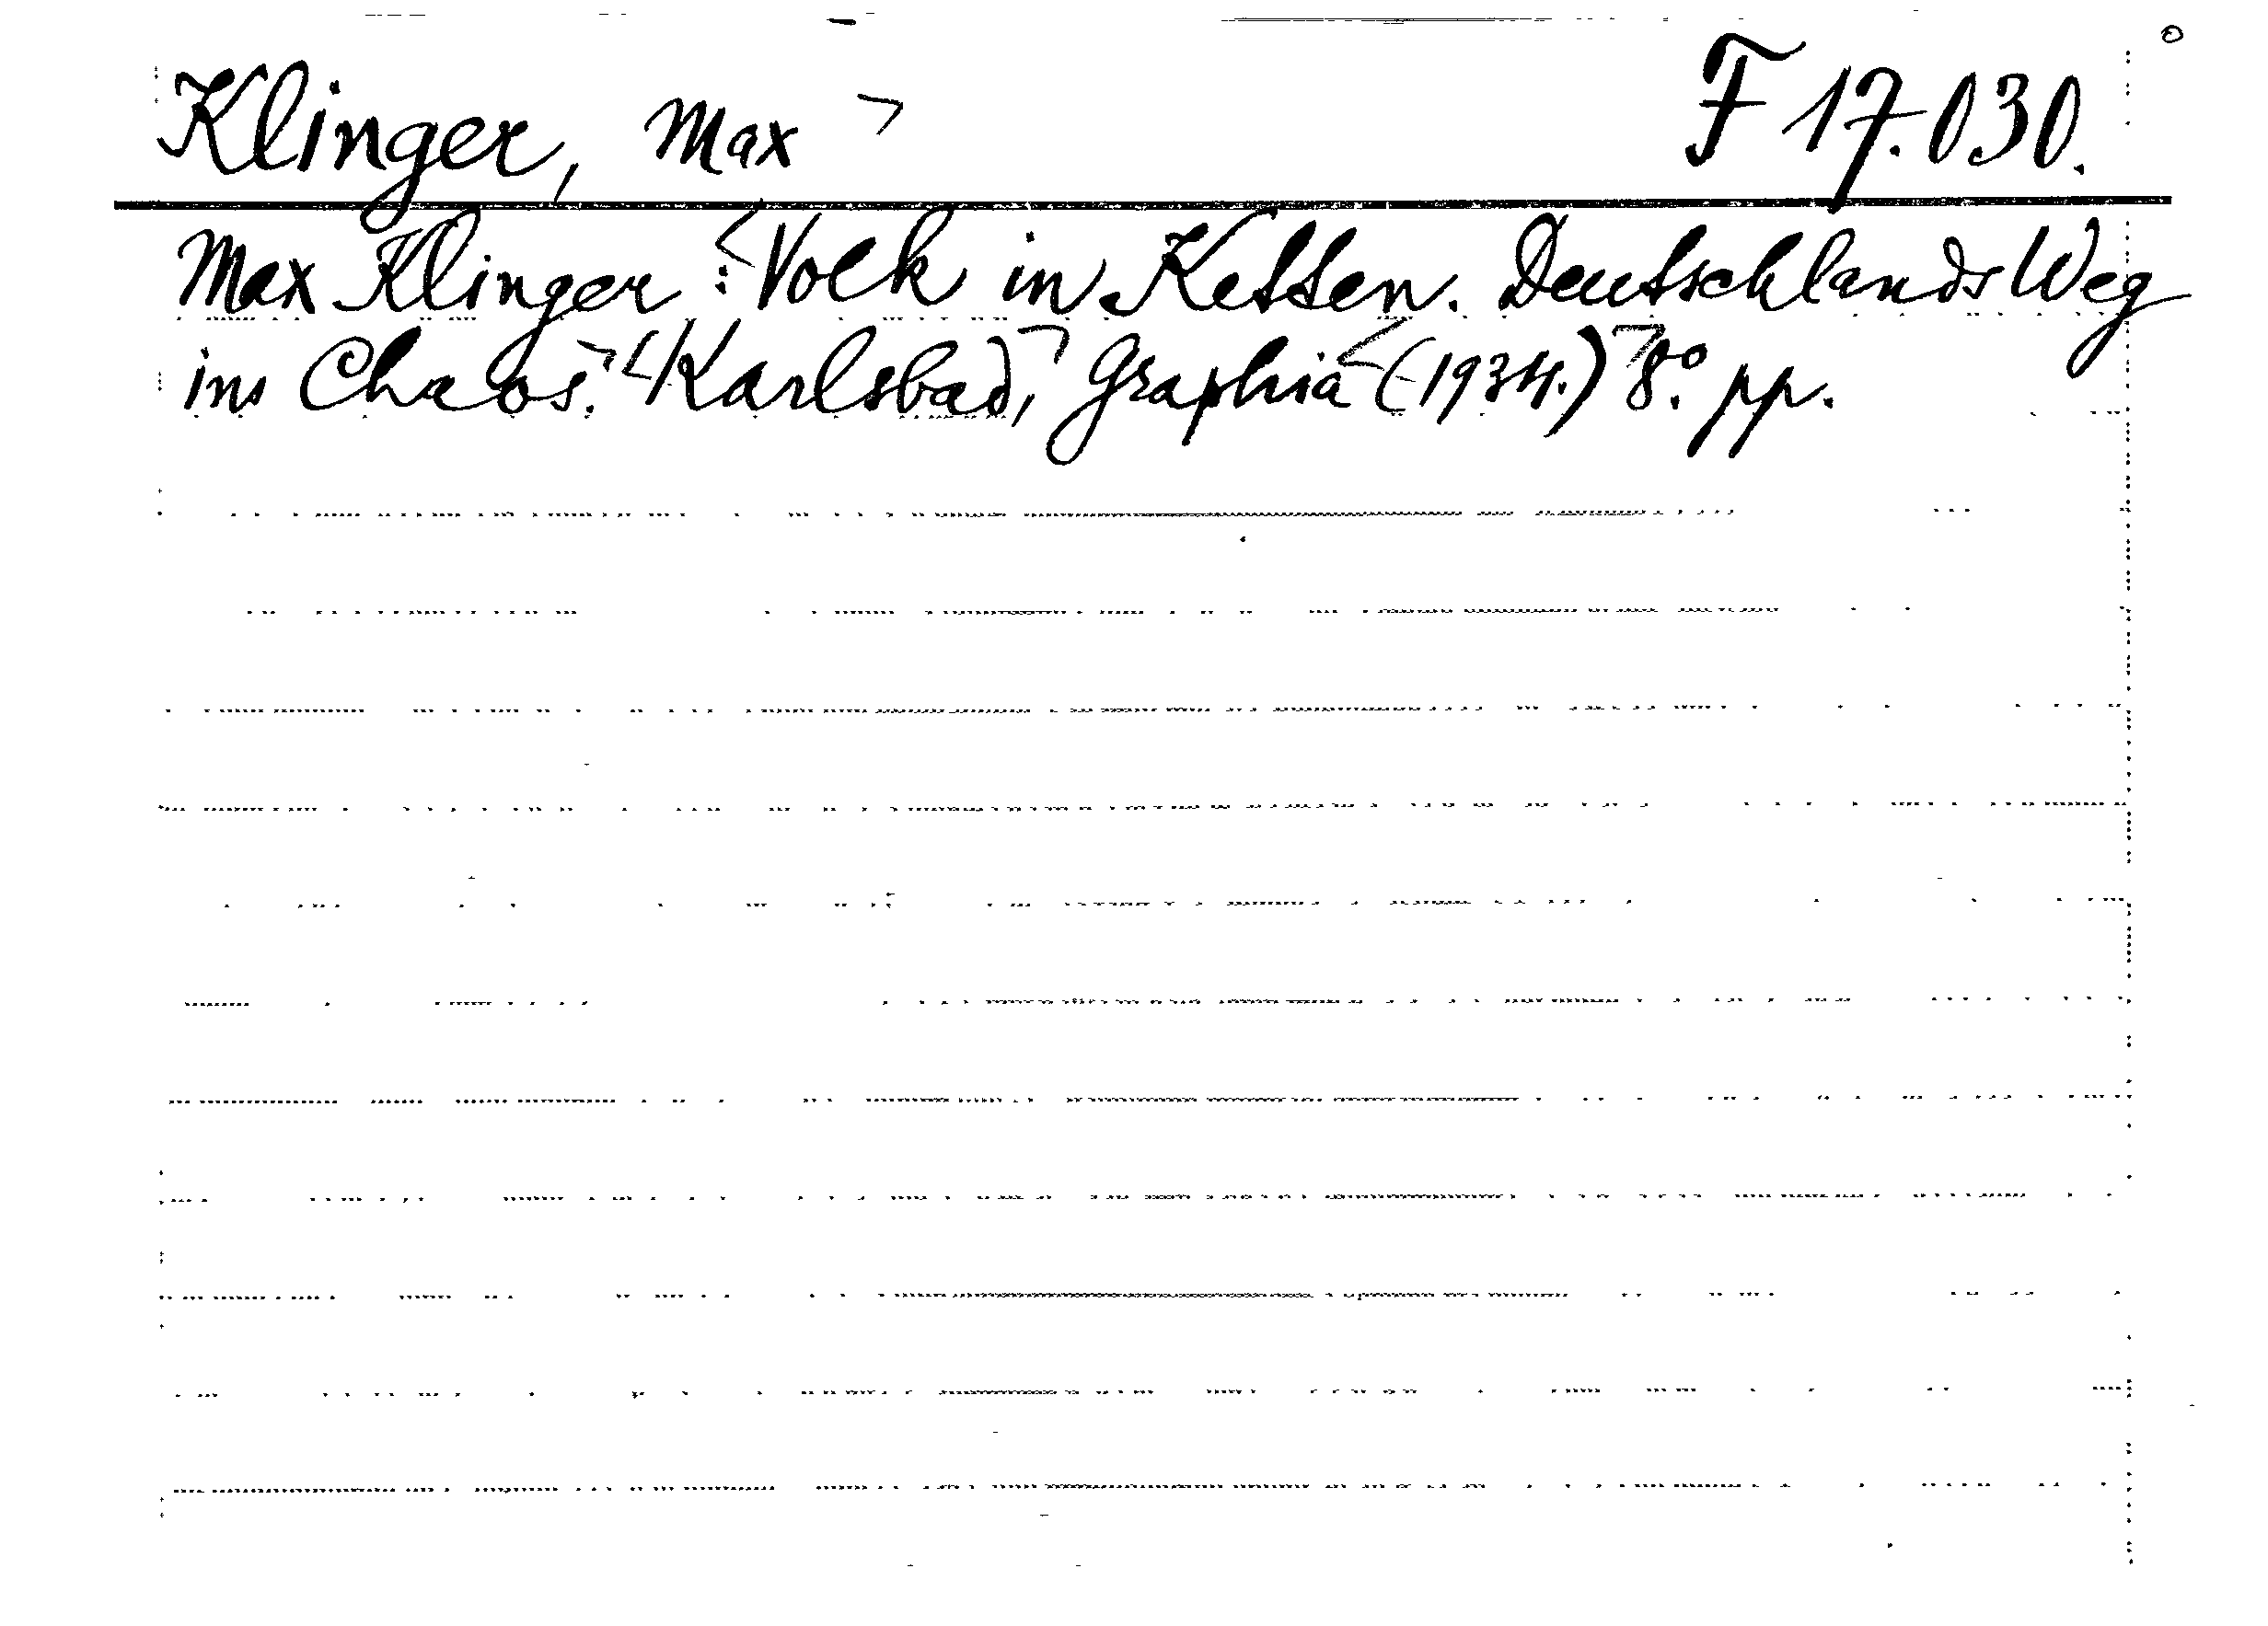 Klinger, Max F 17.030.
Max Klinger: Volk in Ketten. Deutschlands Weg
ins Chaos. Karlsbad, Graphia (1934.) 8.° pp.